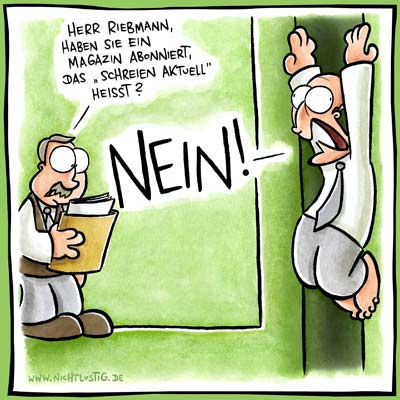 HERR RIEBMANN,
HABEN SIE EIN
MAGAZIN ABONNIERT,
DAS „SCHREIEN AKTUELL"
HEISST?
NEIN!
WWW.NICHTLUSTIG.DE